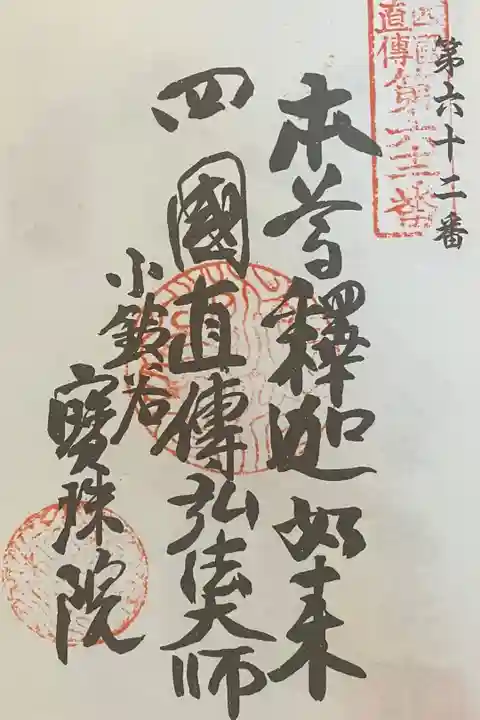 第六十二番
四國
直傳
第六十二番
本尊釋迦如来
四國直傳弘法大師
小鈴谷
寳珠院